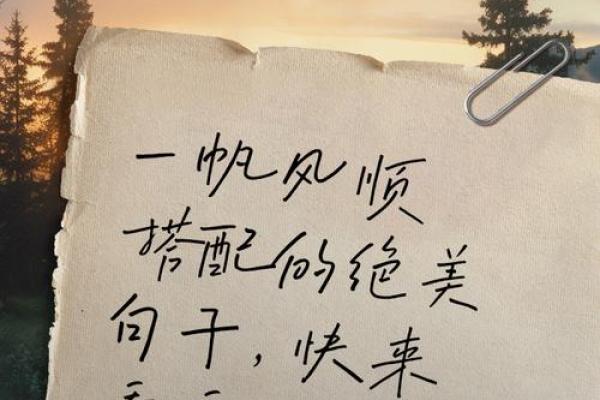 一帆风顺
搭配的绝美
句子，快来